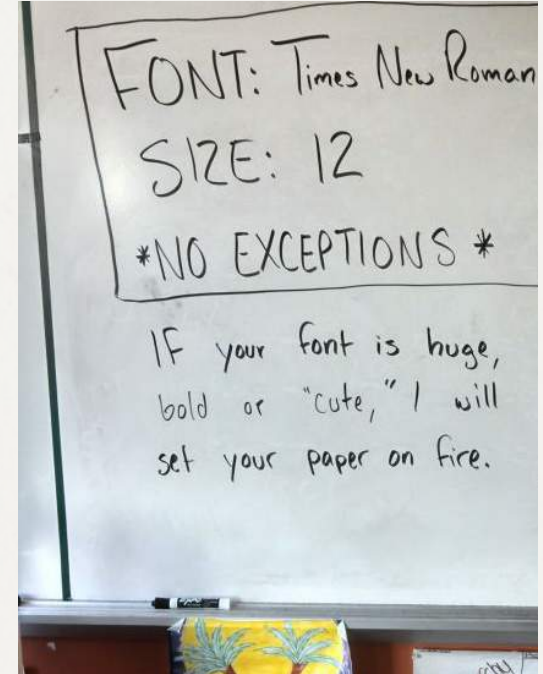 FONT: Times New Roman
SIZE: 12
*NO EXCEPTIONS *
IF your font is huge,
bold or "cute," I will
set your paper on fire.